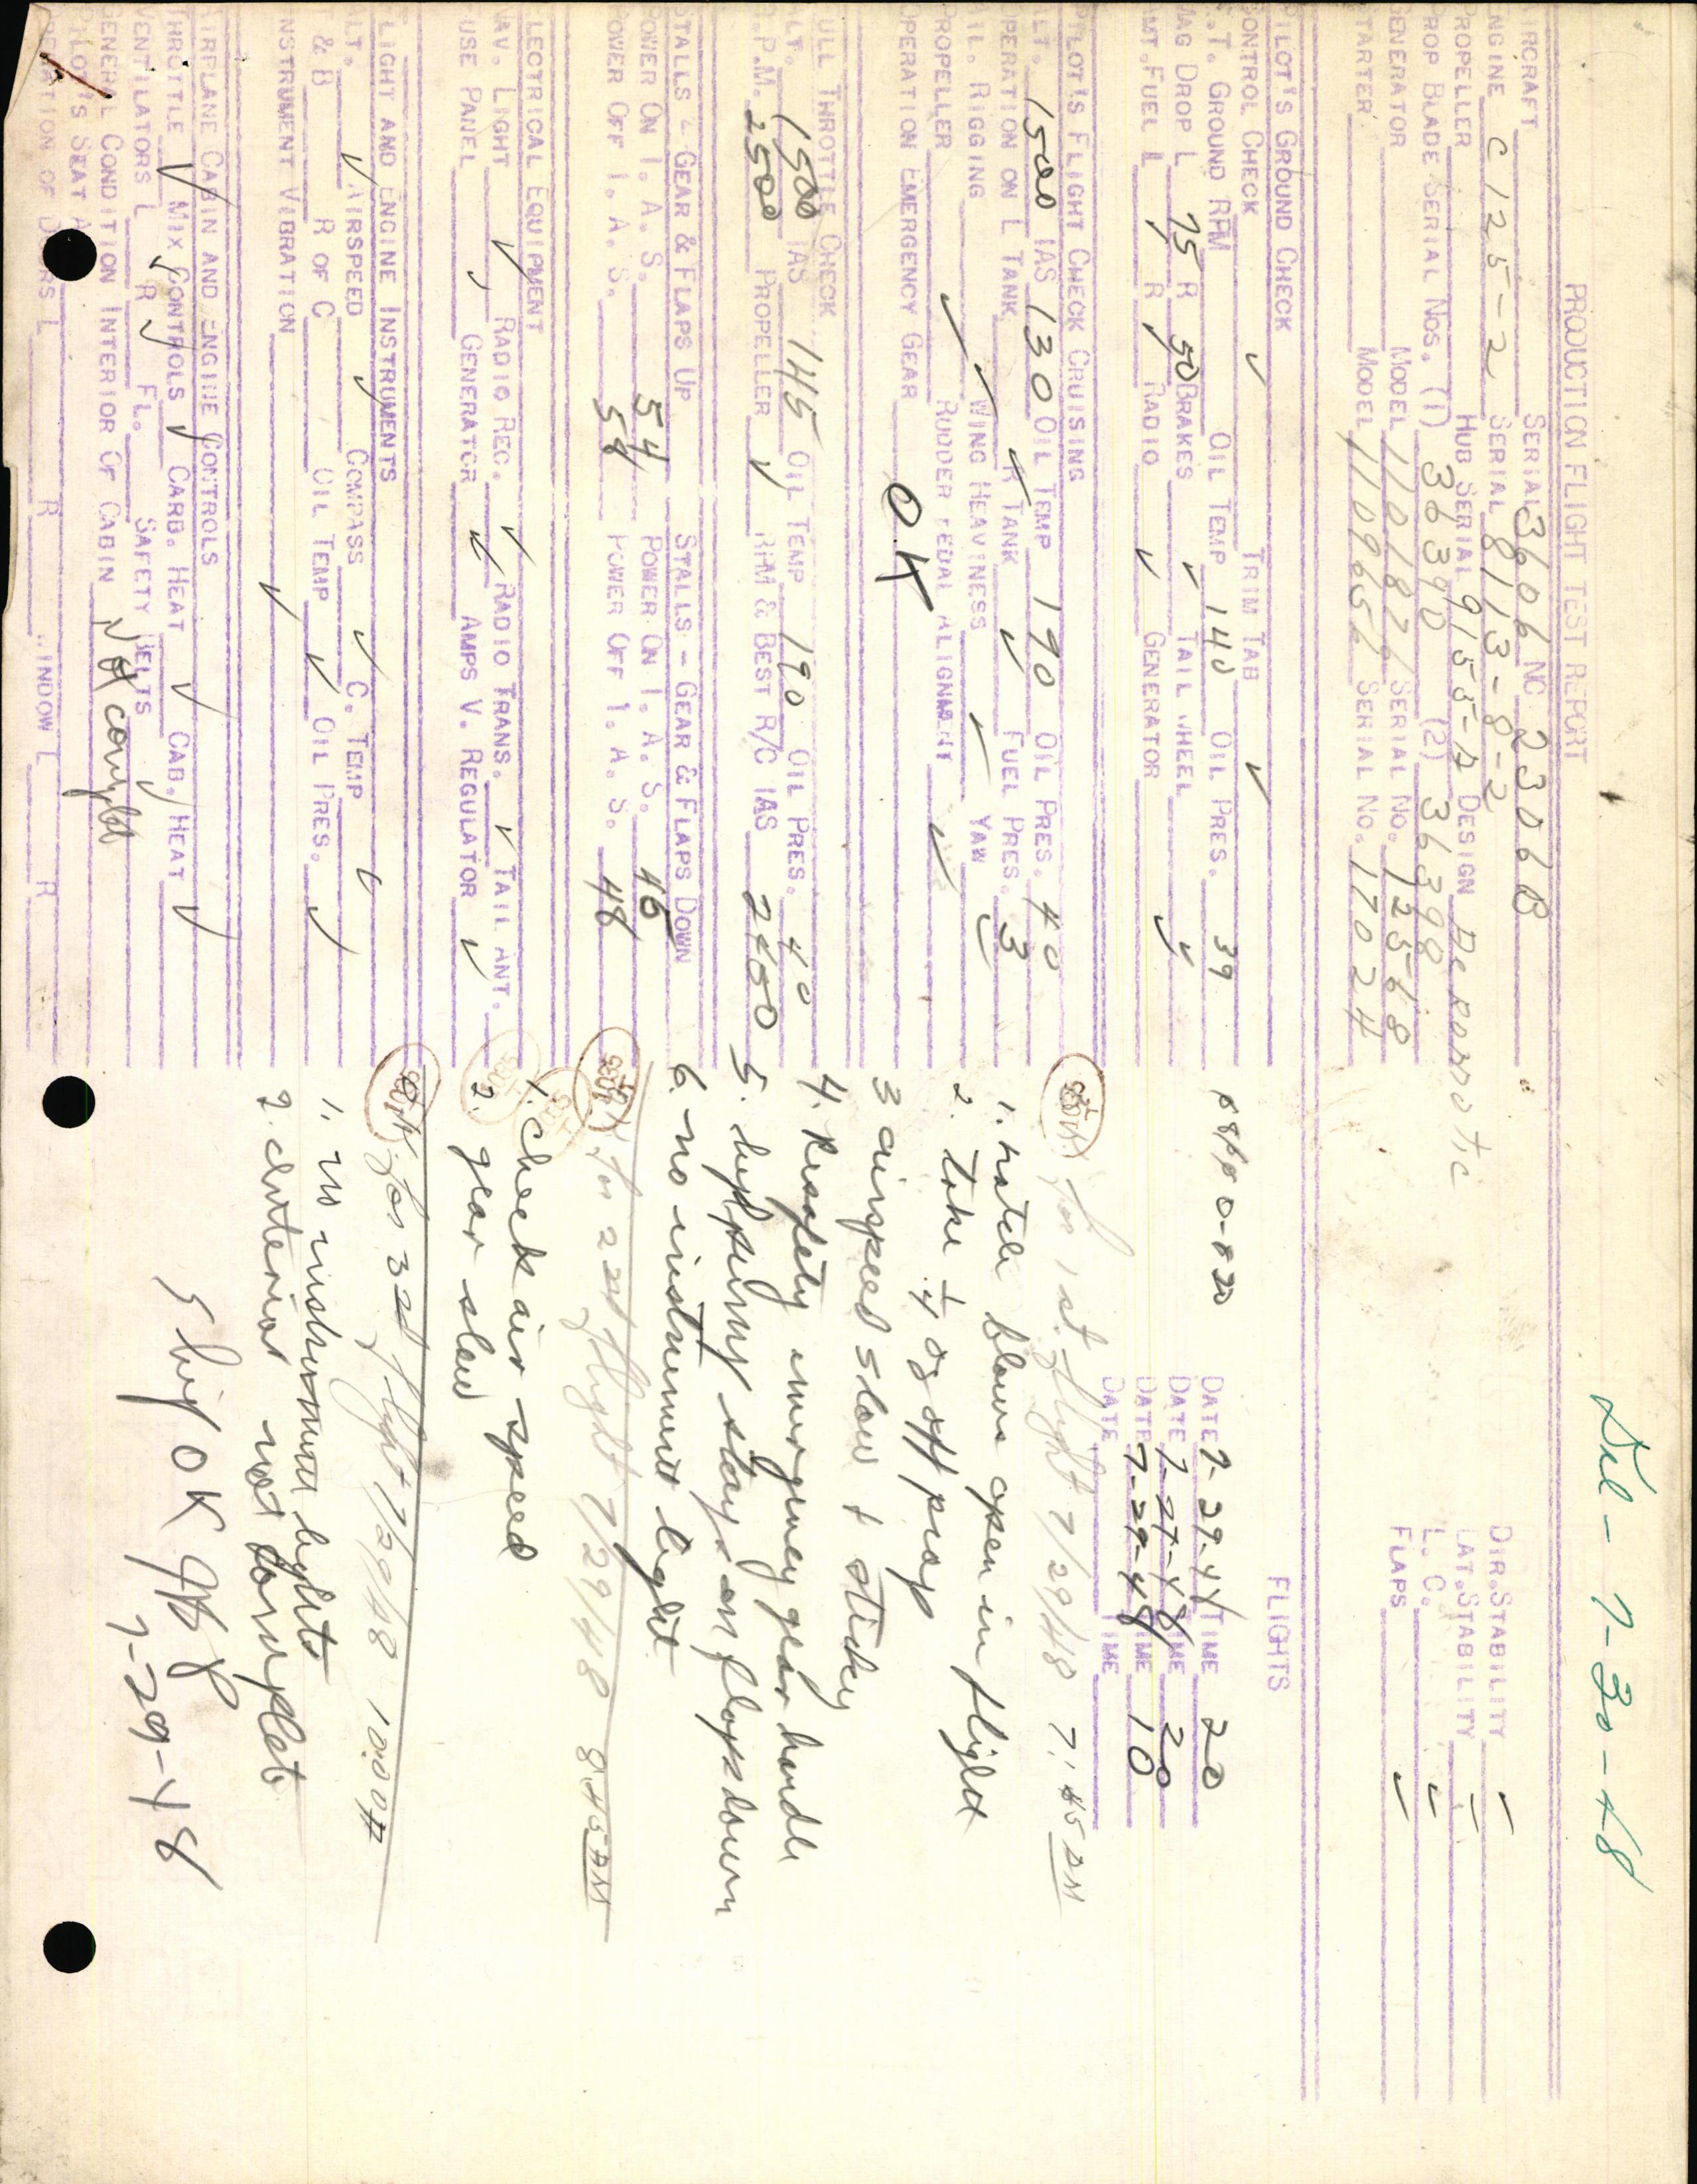 Del - 7-30-48
PRODUCTION FLIGHT TEST REPORT
AIRCRAFT SERIAL 3606 NC 2306B DIR. STABILITY ✓
ENGINE C125-2 SERIAL 8113-8-2 LAT. STABILITY ✓
PROPELLER HUB SERIAL 9155-A DESIGN L. C. ✓
PROP BLADE SERIAL NOS. (1) 36390 (2) 36398 FLAPS ✓
GENERATOR MODEL 1101876 SERIAL NO. 125568
STARTER MODEL 1109656 SERIAL NO. 17024
PILOT'S GROUND CHECK FLIGHTS
CONTROL CHECK ✓ TRIM TAB ✓
S.T. GROUND RPM OIL TEMP 140 OIL PRES. 39 DATE 7-29-48 TIME 20
MAG DROP L 75 R 50 BRAKES ✓ TAIL WHEEL DATE 7-29-48 TIME 20
AMT. FUEL L ✓ R ✓ RADIO ✓ GENERATOR ✓ DATE 7-29-48 TIME 10
DATE TIME
PILOT'S FLIGHT CHECK CRUISING
ALT. 1500 IAS 130 OIL TEMP 190 OIL PRES. 40
for 1st flight 7/29/48 7:45 AM
OPERATION ON L TANK ✓ R TANK ✓ FUEL PRES. 3
1. hatch blows open in flight
AIL. RIGGING ✓ WING HEAVINESS ✓ YAW ✓
2. Take 1/4 of off prop
PROPELLER ✓ RUDDER PEDAL ALIGNMENT ✓
OPERATION EMERGENCY GEAR OK
3 airspeed slow & sticky
FULL THROTTLE CHECK
ALT. 1500 IAS 145 OIL TEMP 190 OIL PRES. 40
4. Resafety emergency gear handle
R.P.M. 2500 PROPELLER ✓ RPM & BEST R/C IAS 2400
5. stays on flaps down
STALLS - GEAR & FLAPS UP STALLS - GEAR & FLAPS DOWN
6. no instrument light
POWER ON I. A. S. 54 POWER ON I. A. S. 46
POWER OFF I. A. S. 58 POWER OFF I. A. S. 48
for 2nd flight 7/29/48 8:45 AM
ELECTRICAL EQUIPMENT
1. Check air speed
NAV. LIGHT ✓ RADIO REC. ✓ RADIO TRANS. ✓ TAIL ANT.
FUSE PANEL ✓ GENERATOR ✓ AMPS V. REGULATOR ✓
2. gear slow
FLIGHT AND ENGINE INSTRUMENTS
O.K. for 3rd flight 7/29/48 10:00A
ALT. ✓ AIRSPEED ✓ COMPASS ✓ C. TEMP ✓
T & B R OF C OIL TEMP ✓ OIL PRES. ✓
1. no instrument lights
INSTRUMENT VIBRATION ✓
2. interior not complete
AIRPLANE CABIN AND ENGINE CONTROLS
THROTTLE ✓ MIX CONTROLS ✓ CARB. HEAT ✓ CAB. HEAT ✓
VENTILATORS L ✓ R ✓ FL. SAFETY BELTS ✓
GENERAL CONDITION INTERIOR OF CABIN Not complete
PILOT'S SEAT
OPERATION OF DOORS L R WINDOW L R
Ship OK
7-29-48